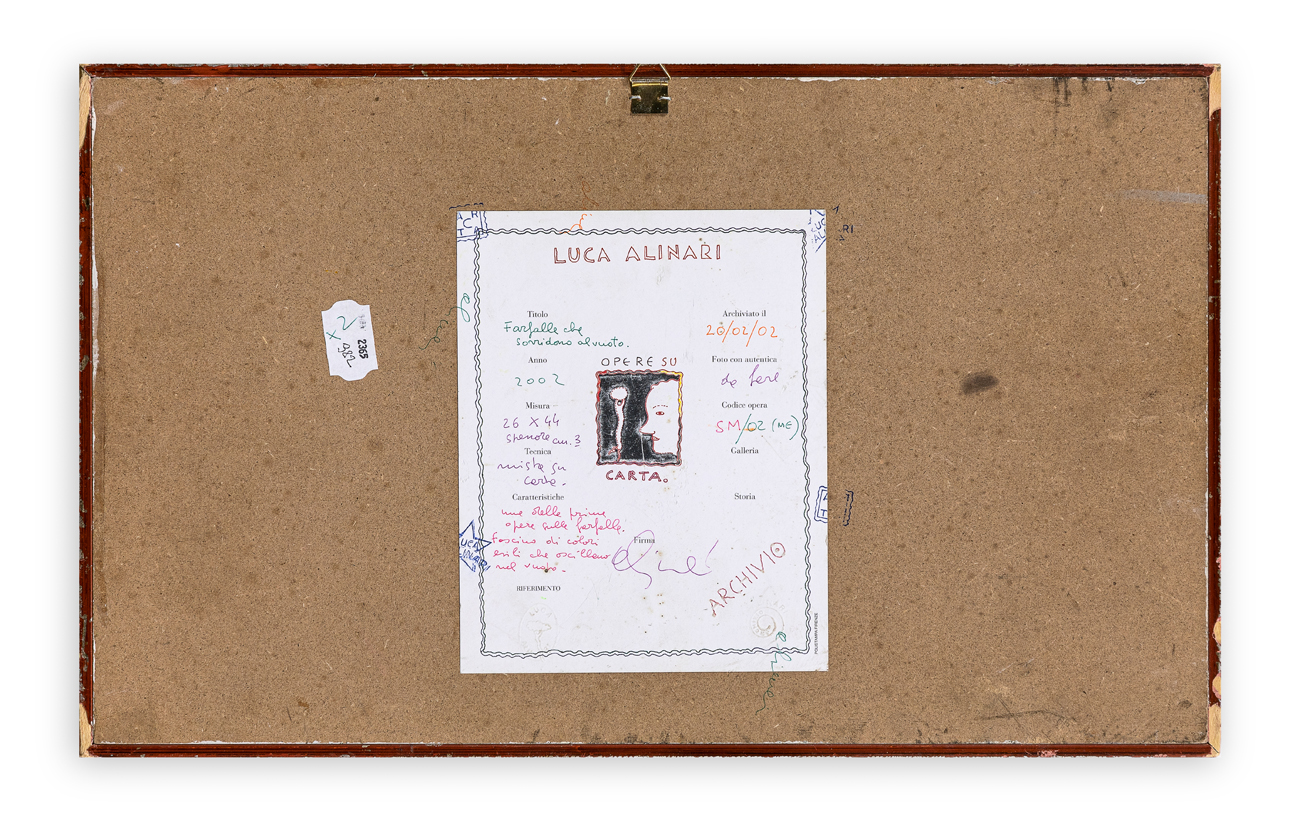 LUCA ALINARI
Titolo
Farfalle che
sorridono al vuoto.
Anno
2002
Misura
26 x 44
spessore cm. 3
Tecnica
mista su
carta.
Caratteristiche
una delle prime
opere sulle farfalle.
Fascino di colori
esili che oscillano
nel vuoto.
RIFERIMENTO
OPERE SU
CARTA.
Firma
Archiviato il
20/02/02
Foto con autentica
da fare
Codice opera
SM/02 (ME)
Galleria
Storia
ARCHIVIO
2365